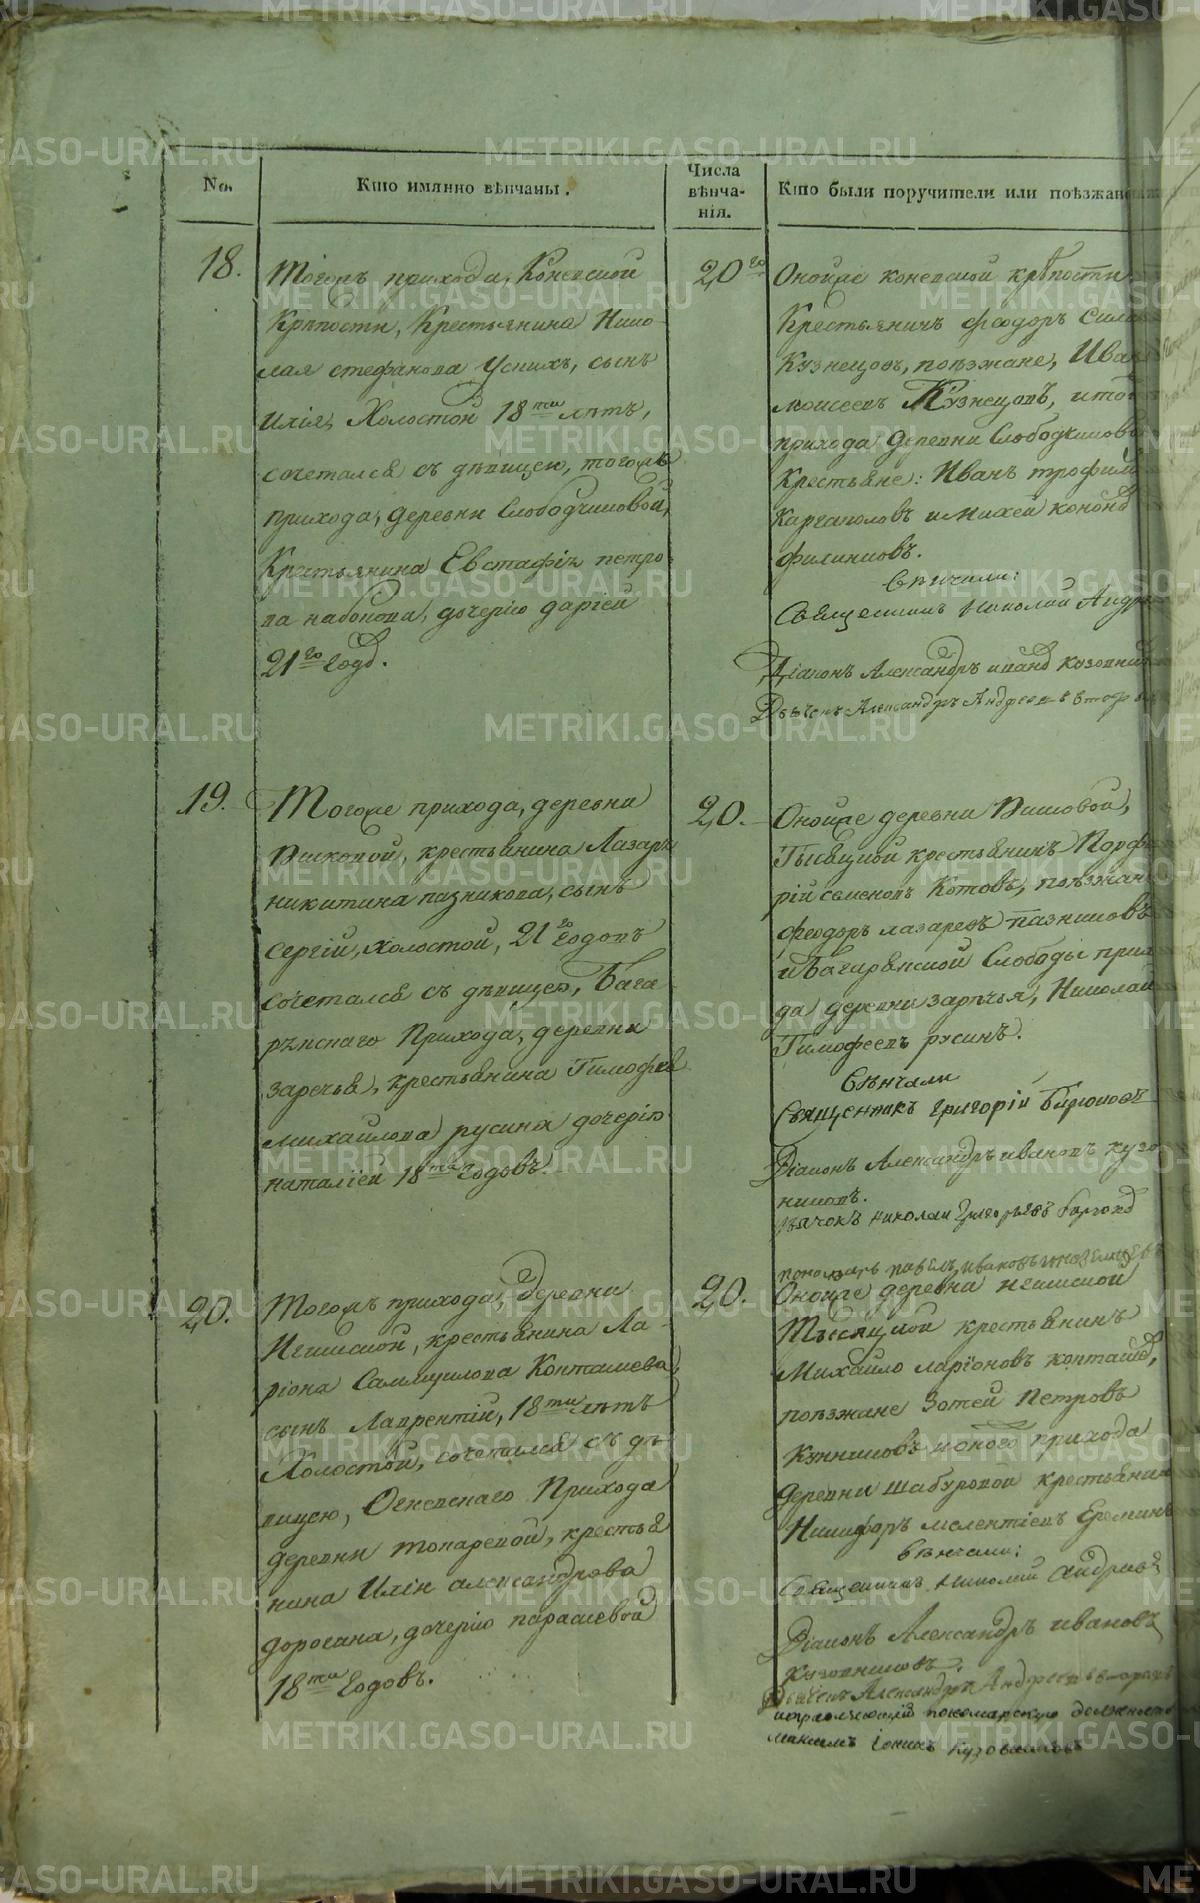 No.
Кто имянно вѣнчаны.
Числа
вѣнча-
нія.
Кто были поручители или поѣзжан
18.
Тогожъ прихода, Коневской
Крѣпости, Крестьянина Нико
лая стефанова Усихъ, сынъ
илія, Холостой 18ти лѣтъ,
сочетался съ дѣвицею, тогожъ
прихода, деревни Слободчиковой,
Крестьянина Евстафія петро
ва набокова, дочерію даріей
21го Годд.
20го
Онойже коневской крѣпости
Крестьянинъ феодоръ Сил
Кузнецовъ, поѣзжане, Ива
моисеевъ Кузнецовъ, итог
прихода деревни Слободчиков
Крестьяне: Иванъ трофим
Каргаполовъ имихей конон
филинковъ.
Вѣнчали:
Священникъ Николай Андр
Діаконъ Александръ ивано кузовник
Дьячекъ Александръ Андреевъ
19.
Тогоже прихода, деревни
крестьянина Лазаря
никитина пазникова, сынъ
сергій, холостой, 21го Годовъ
сочетался съ дѣвицею, Бага
рѣкскаго Прихода, деревни
заречья, крестьянина Тимофея
михаилова русина дочерію
наталіей 18ти Годовъ.
20.
Онойже деревни
Тысяцкой крестьянинъ Порфи
рій семеновъ Котовъ, поѣзжан
феодоръ лазаревъ пазниковъ
иБагаряксмой Слободы прих
да деревни зарѣчья, Николай
Тимофеевъ русинъ.
Вѣнчали
Священникъ Григорій Бирюковъ
Діаконъ Александръ ивановъ кузо
никовъ.
дьячокъ николаи Григорьевъ
пономарь павелъ ивановъ
20.
Тогожъ прихода, деревни
крестьянина Ла
ріона Самуилова Копташева,
сынъ Лаврентій, 18ти лѣтъ
Холостой, сочетался съ дѣ
вицею, Огневскаго Прихода
деревни токаревой, крестья
нина Иліи александрова
доросина, дочерію парасковой
18ти Годовъ.
20.
Онойже деревни
Тысяцкой крестьянинъ
Михайло ларіоновъ
поѣзжане Зотей Петровъ
ионого прихода
деревни шабуровой крестьянин
Никифоръ мелентіевъ Ереминъ
вѣнчали:
Священникъ Николай Андреев
Діаконъ Александръ ивановъ
Кузовниковъ.
Дьячекъ Александръ Андреевъ
исправляющій пономарскую должность
максимъ іонинъ кузовниковъ
METRIKI.GASO-URAL.RU